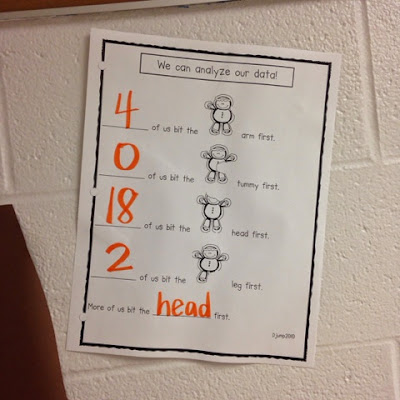 We can analyze our data!
4 of us bit the arm first.
0 of us bit the tummy first.
18 of us bit the head first.
2 of us bit the leg first.
More of us bit the head first.